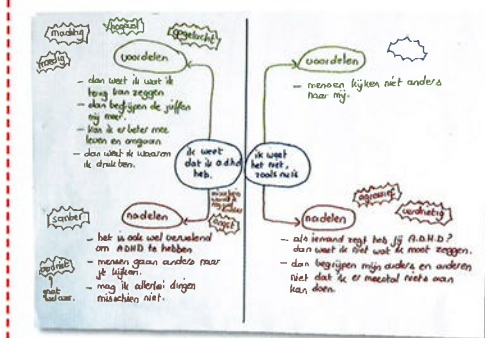 moedig
hoopvol
opgelucht
voordelen
- dan weet ik wat ik
terug kan zeggen
- dan begrijpen de juffen
mij meer.
- kan ik er beter mee
leven en omgaan
- dan weet ik waarom
ik druk ben.
ik weet
dat ik a.d.h.d
heb.
nadelen
- het is ook wel vervelend
om ADHD te hebben
- mensen gaan anders naar
je kijken.
- mag ik allerlei dingen
misschien niet.
voordelen
- mensen kijken niet anders
naar mij.
ik weet
het niet,
zoals nu ik
agressief
verdrietig
nadelen
- als iemand zegt heb jij A.D.H.D?
dan weet ik niet wat ik moet zeggen.
- dan begrijpen mijn ouders en anderen
niet dat ik er meestal niets aan
kan doen.